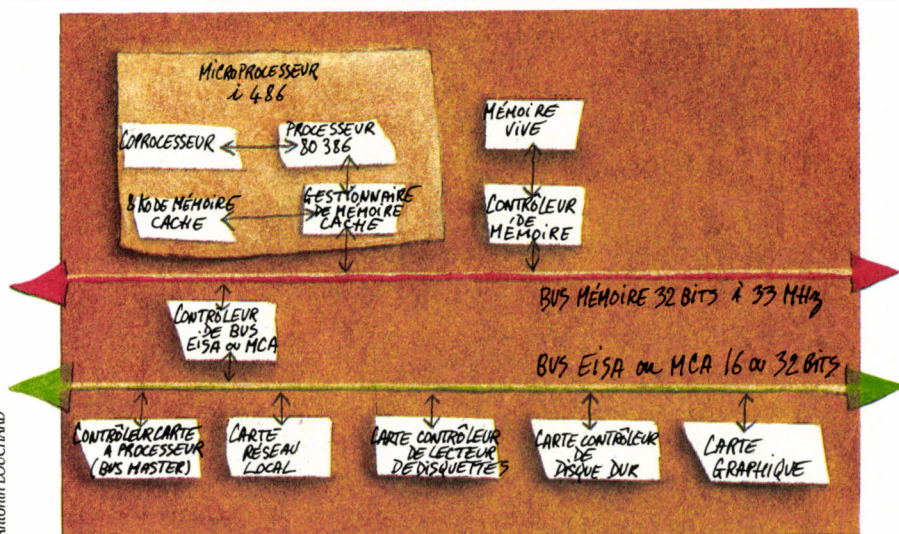 MICROPROCESSEUR
i 486
COPROCESSEUR
PROCESSEUR
80 386
8 KO DE MÉMOIRE
CACHE
GESTIONNAIRE
DE MÉMOIRE
CACHE
MÉMOIRE
VIVE
CONTRÔLEUR
DE
MÉMOIRE
BUS MÉMOIRE 32 BITS À 33 MHz
CONTRÔLEUR
DE BUS
EISA ou MCA
BUS EISA ou MCA 16 ou 32 BITS
CONTRÔLEUR CARTE
A PROCESSEUR
(BUS MASTER)
CARTE
RÉSEAU
LOCAL
CARTE CONTRÔLEUR
DE LECTEUR
DE DISQUETTES
CARTE CONTRÔLEUR
DE
DISQUE DUR
CARTE
GRAPHIQUE
Antonin LOUCHARD